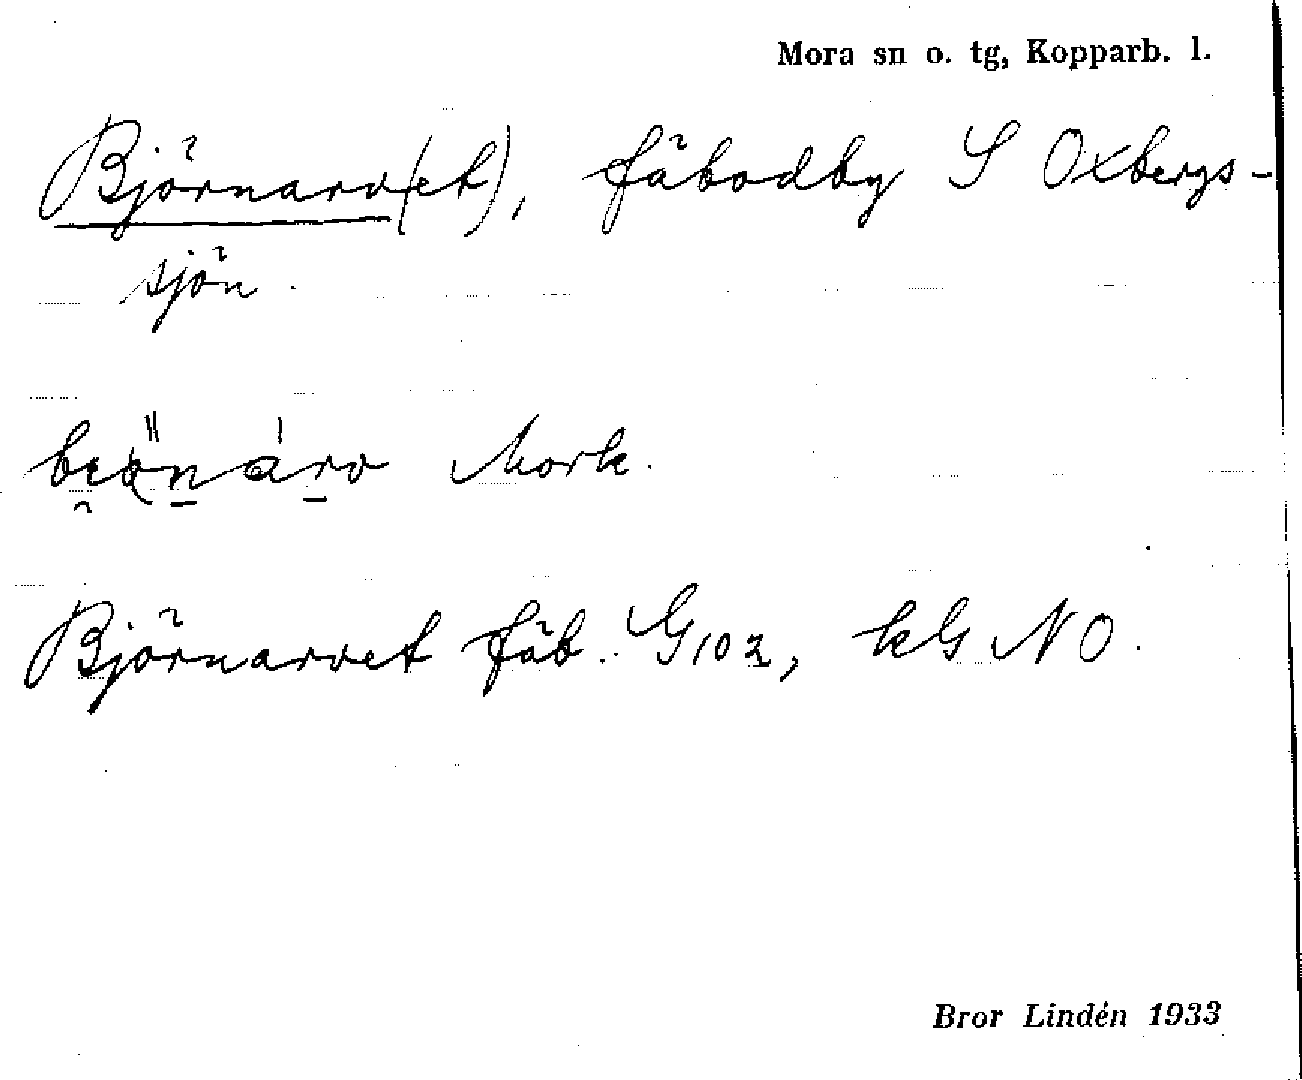 Mora sn o. tg, Kopparb. l.
Björnarv(et), fäbodby S Oxbergs-
sjön.
Mork.
Björnarvet fäb. G102, kG NO.
Bror Lindén 1933